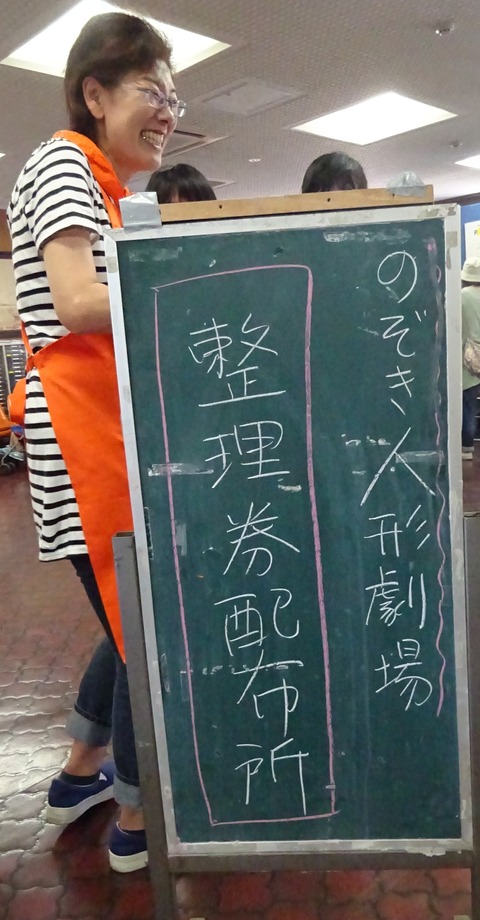 のぞき人形劇場
整理券配布所